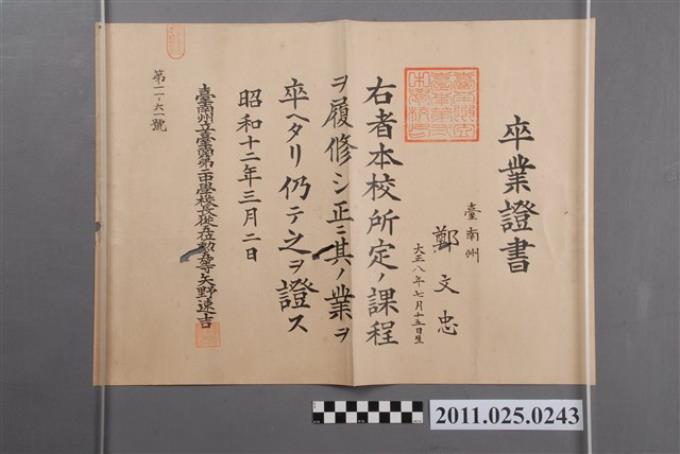 卒業證書
臺南州
鄭文忠
大正八年七月十五日生
右者本校所定ノ課程
ヲ履修シ正ニ其ノ業ヲ
卒ヘタリ仍テ之ヲ證ス
昭和十二年三月二日
臺南州立臺南第二中學校長從五位勳五等矢野速吉
第一一六一號
2011.025.0243